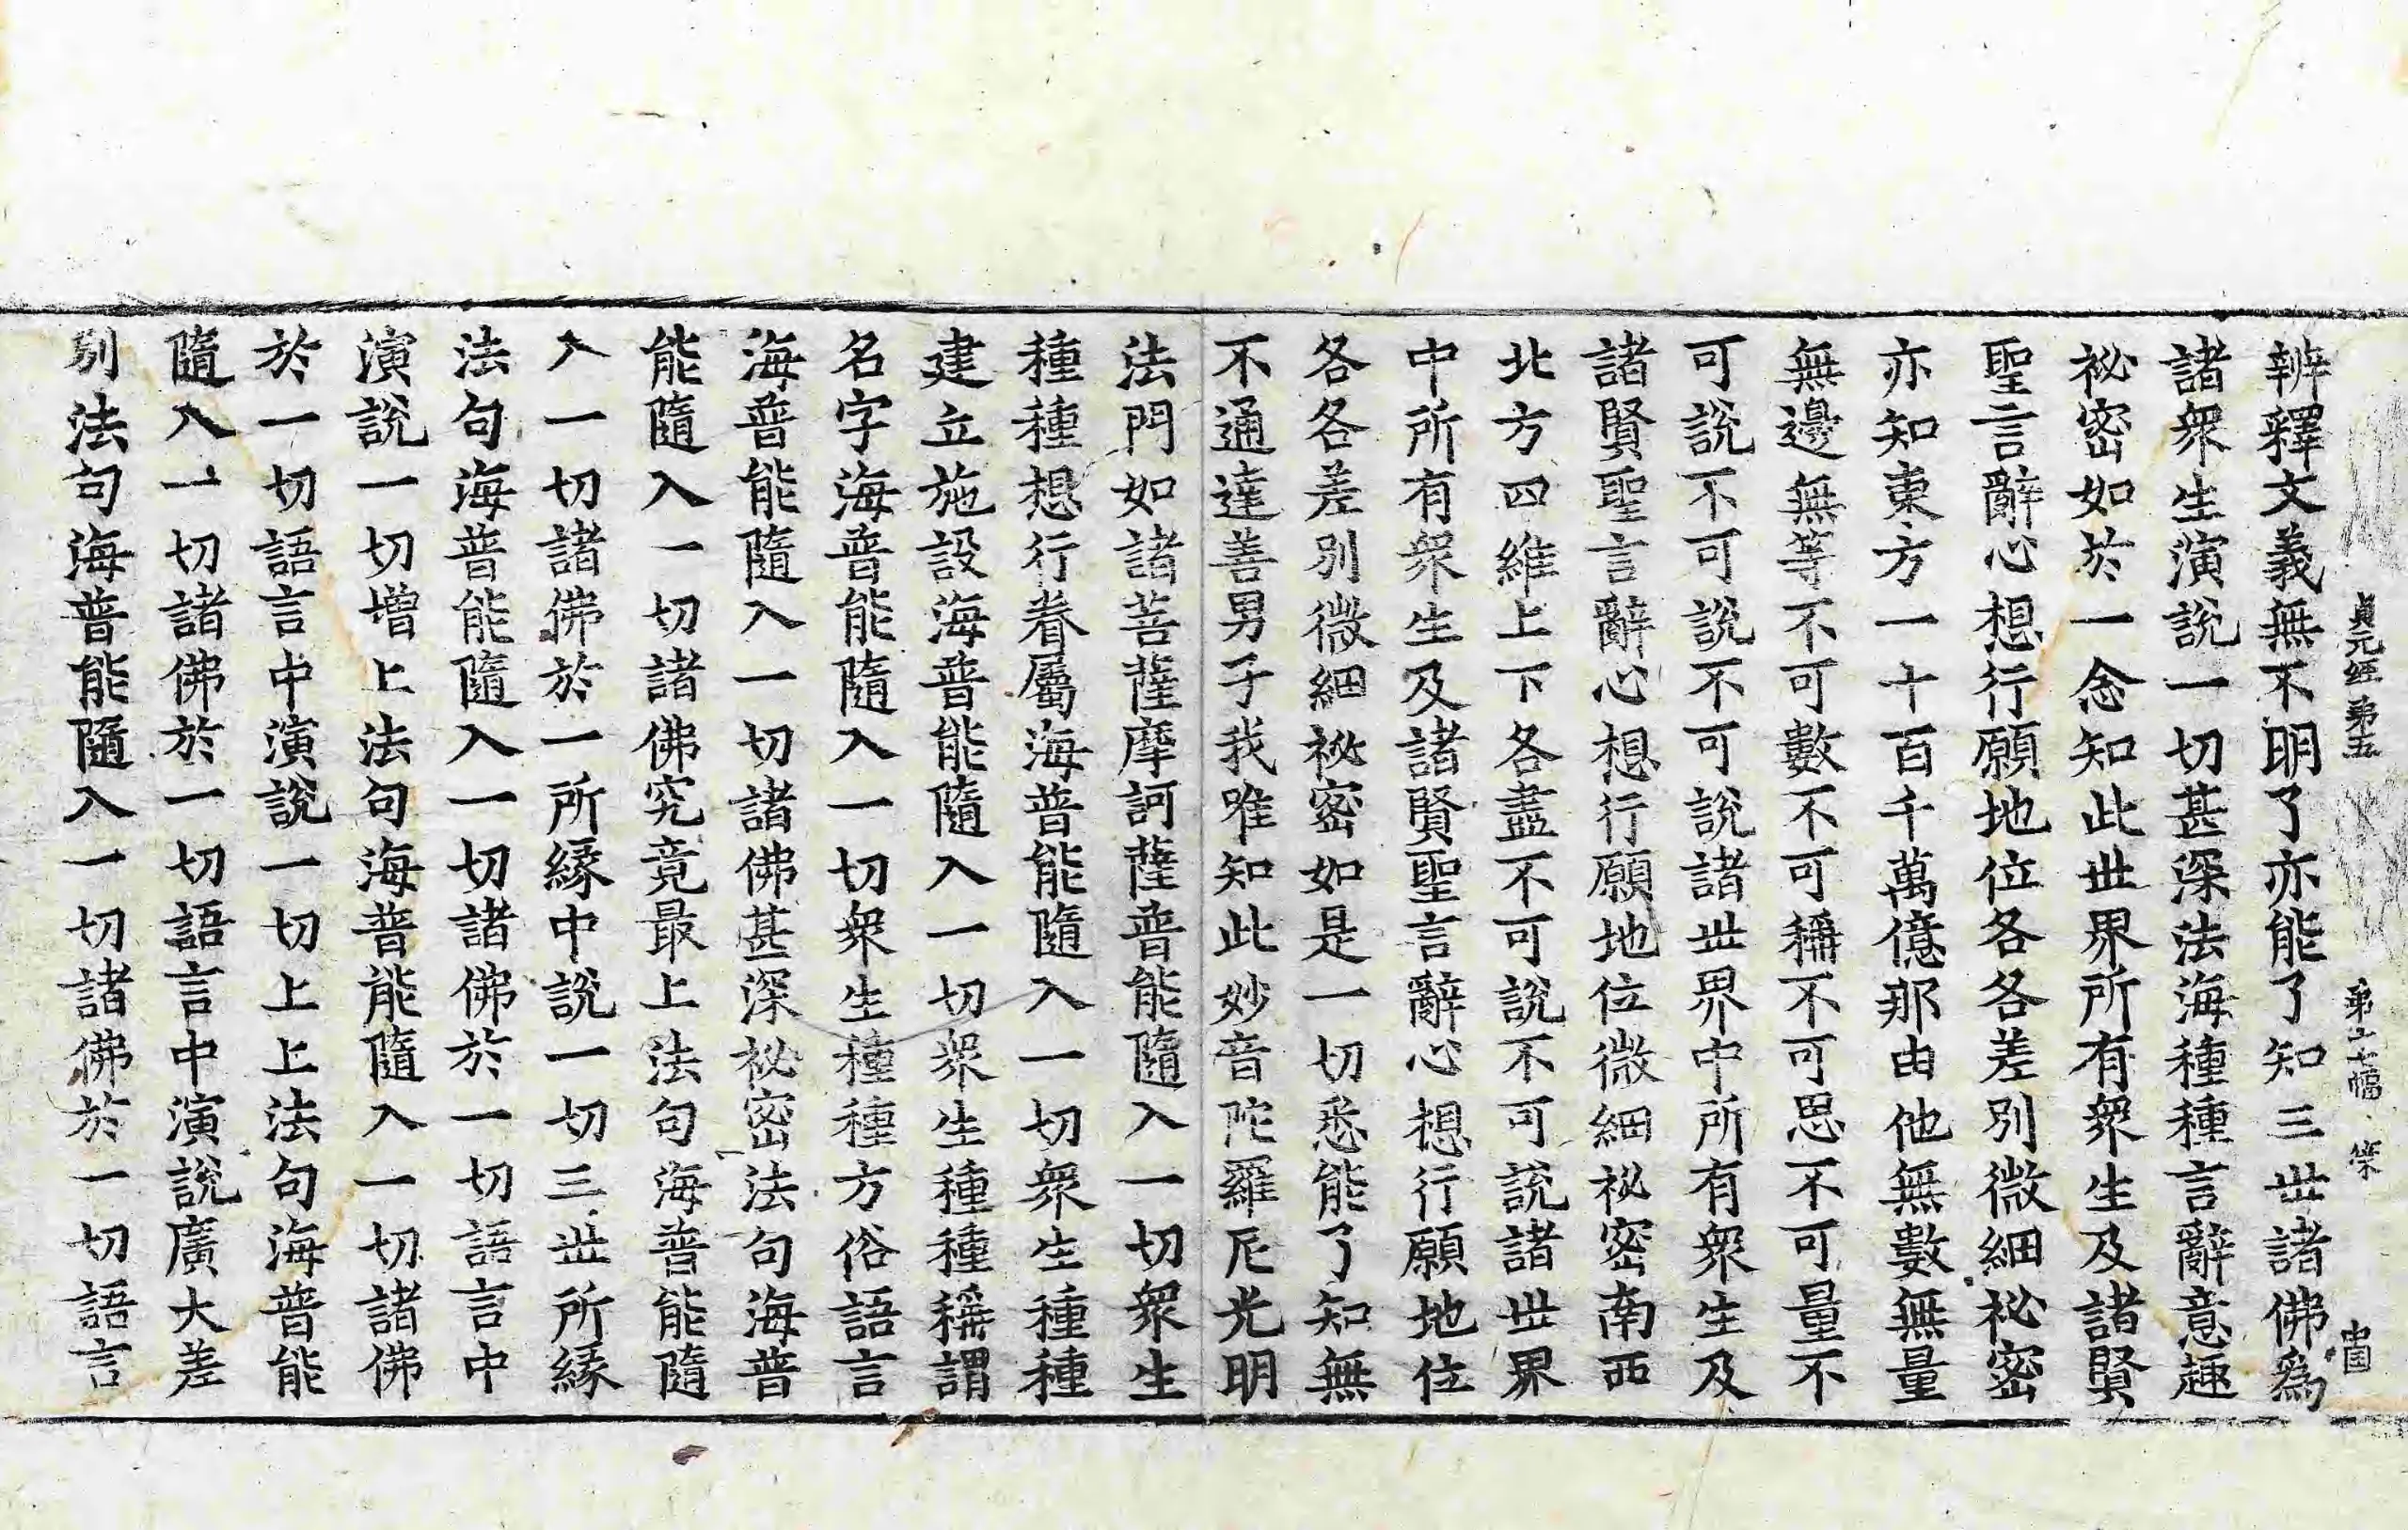 貞元經第五　第十七幅　
辨釋文義無不明了亦能了知三世諸佛爲
諸衆生演說一切甚深法海種種言辭意趣
祕密如於一念知此世界所有衆生及諸賢
聖言辭心想行願地位各各差別微細祕密
亦知東方一十百千萬億那由他無數無量
無邊無等不可數不可稱不可思不可量不
可說不可說不可說諸世界中所有衆生及
諸賢聖言辭心想行願地位微細祕密南西
北方四維上下各盡不可說不可說諸世界
中所有衆生及諸賢聖言辭心想行願地位
各各差別微細祕密如是一切悉能了知無
不通達善男子我唯知此妙音陀羅尼光明
法門如諸菩薩摩訶薩普能隨入一切衆生
種種想行眷屬海普能隨入一切衆生種種
建立施設海普能隨入一切衆生種種稱謂
名字海普能隨入一切衆生種種方俗語言
海普能隨入一切諸佛甚深祕密法句海普
能隨入一切諸佛究竟最上法句海普能隨
入一切諸佛於一所緣中說一切三世所緣
法句海普能隨入一切諸佛於一切語言中
演說一切增上法句海普能隨入一切諸佛
於一切語言中演說一切上上法句海普能
隨入一切諸佛於一切語言中演說廣大差
別法句海普能隨入一切諸佛於一切語言